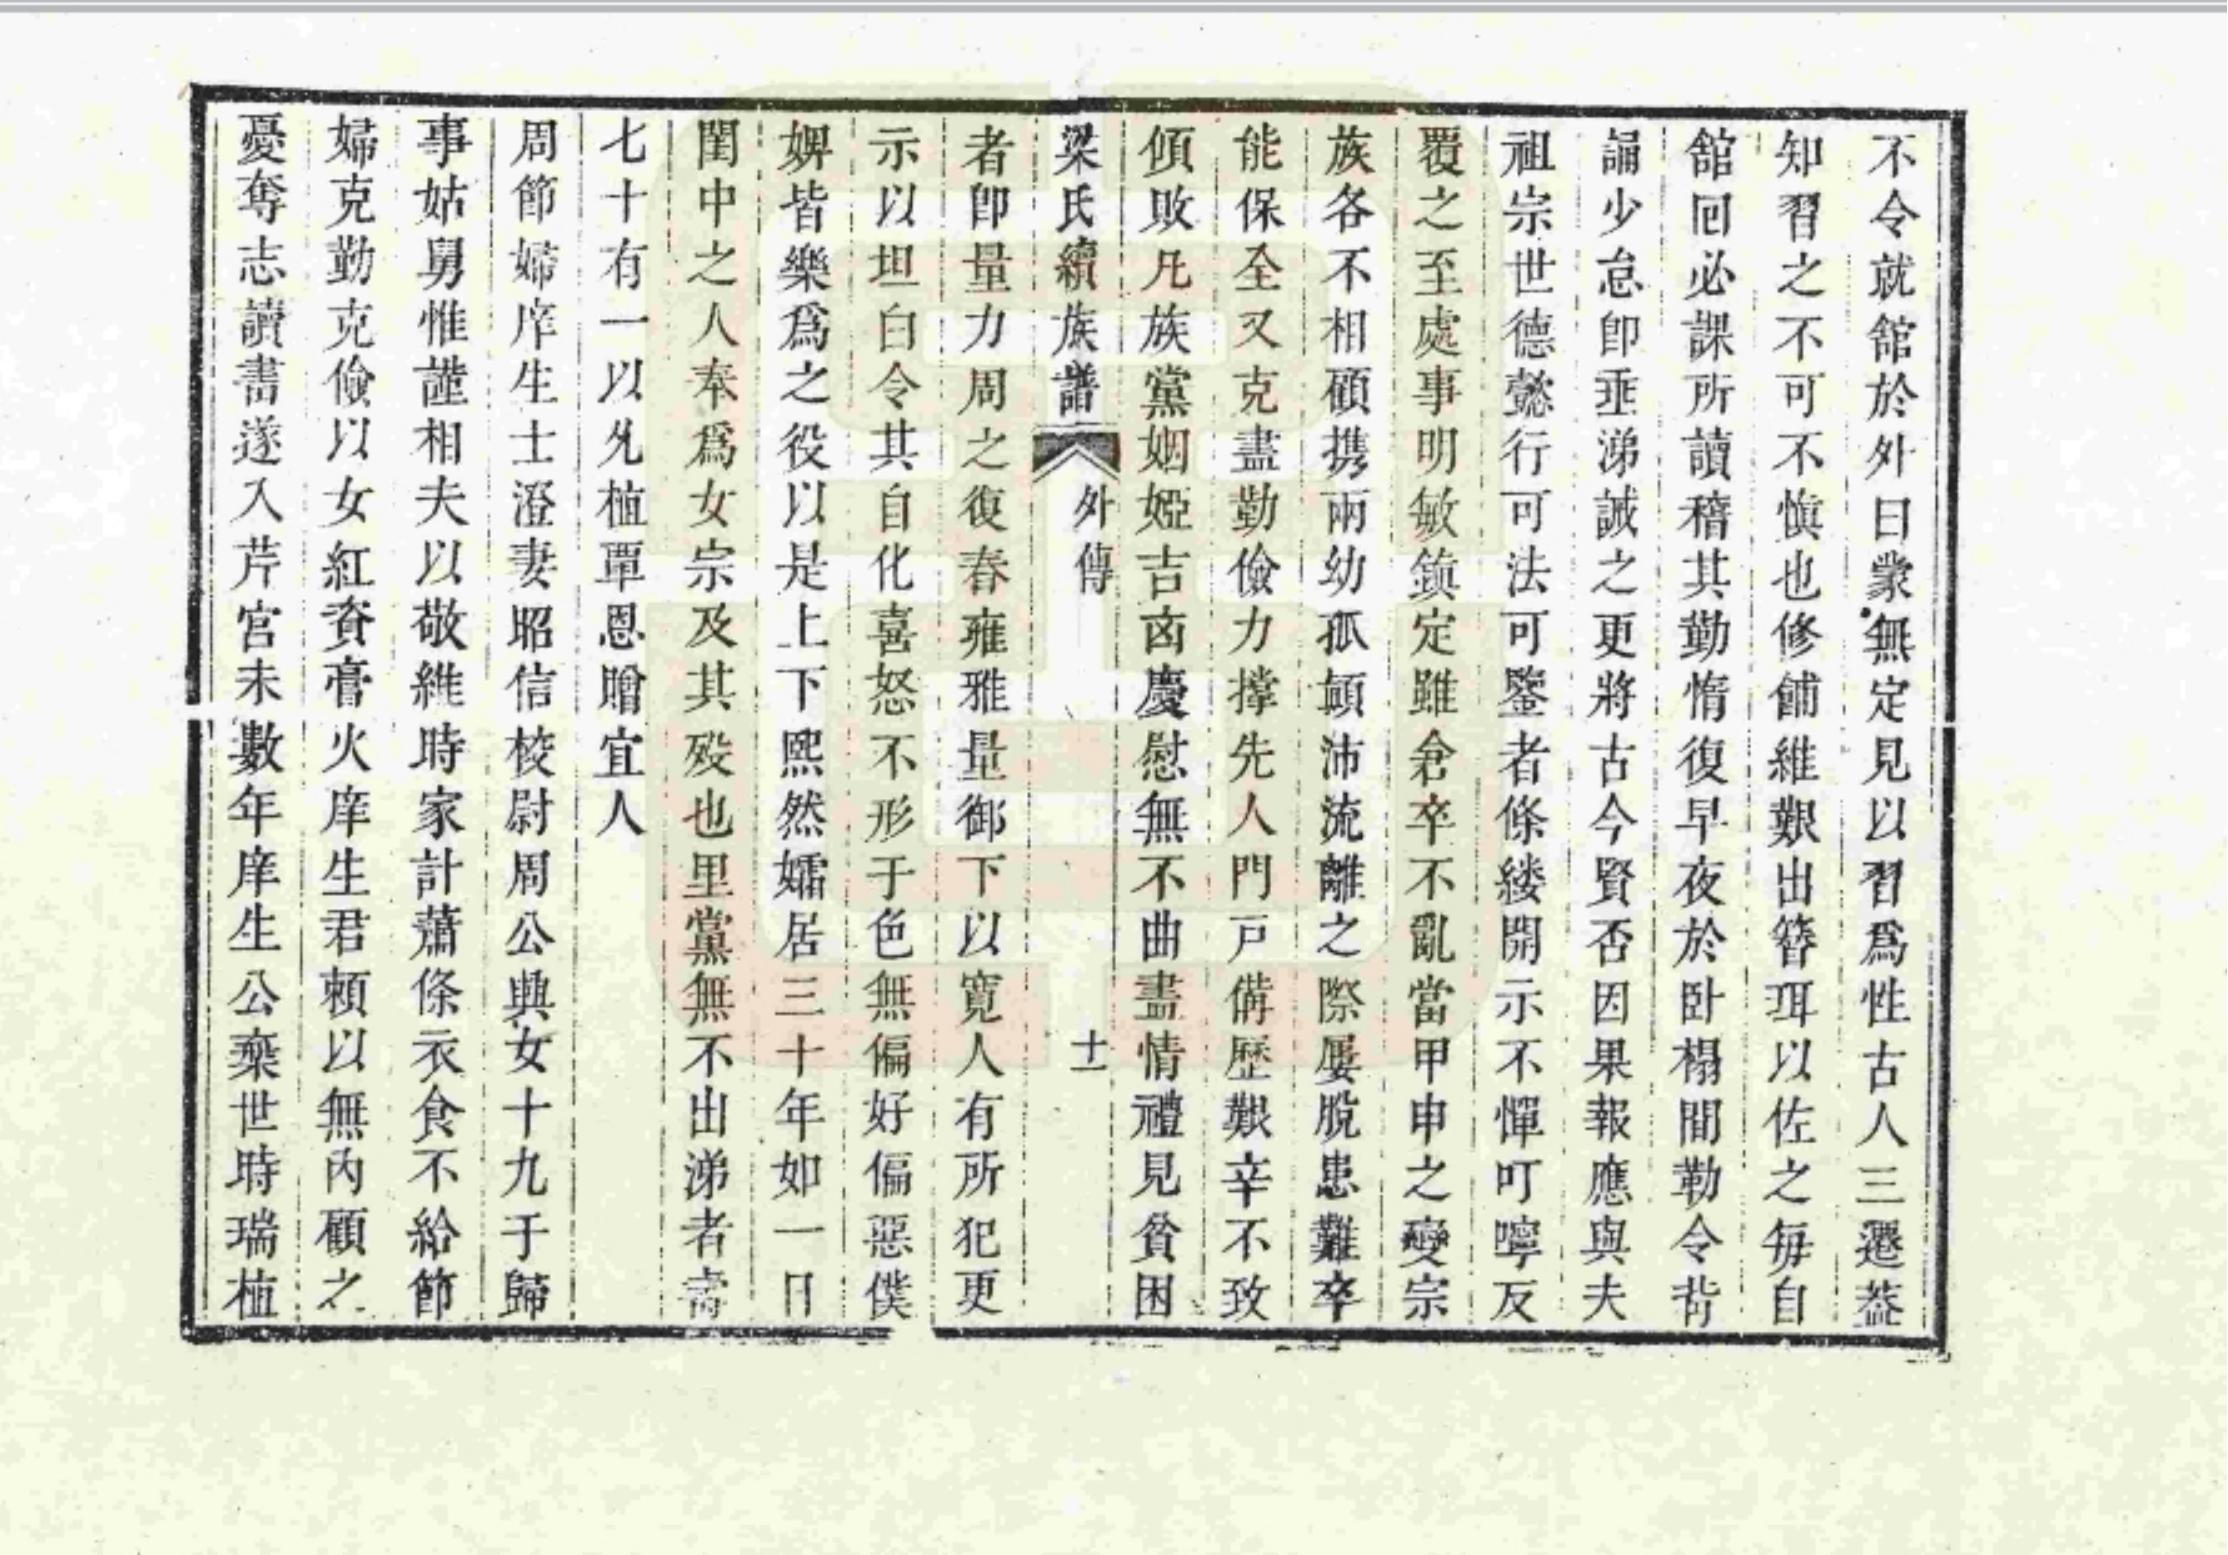 不令就舘於外曰蒙無定見以習爲性古人三遷葢
知習之不可不慎也修餔維艱出簪珥以佐之每自
舘囘必課所讀稽其勤惰復早夜於卧榻間勒令背
誦少怠卽垂涕誡之更將古今賢否因果報應與夫
祖宗世德懿行可法可鑒者條縷開示不憚叮嚀反
覆之至處事明敏鎮定雖倉卒不亂當甲申之變宗
族各不相顧携兩幼孤顛沛流離之際屢脫患難卒
能保全又克盡勤儉力撐先人門戸備歷艱辛不致
傾敗凡族黨姻婭吉凶慶慰無不曲盡情禮見貧困
梁氏續族譜 外傳 十一
者卽量力周之復春雍雅量御下以寬人有所犯更
示以坦白令其自化喜怒不形于色無偏好偏惡僕
婢皆樂爲之役以是上下熙然孀居三十年如一日
閨中之人奉爲女宗及其歿也里黨無不出涕者壽
七十有一以允植覃恩贈宜人
周節婦庠生士澄妻昭信校尉周公興女十九于歸
事姑舅惟謹相夫以敬維時家計蕭條衣食不給節
婦克勤克儉以女紅資膏火庠生君賴以無內顧之
憂奪志讀書遂入芹宫未數年庠生公棄世時瑞植